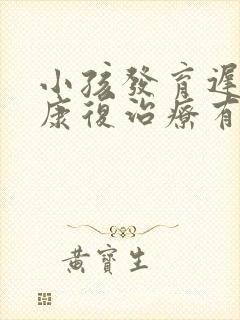 小孩發育遲
康復治療有
黃寶生